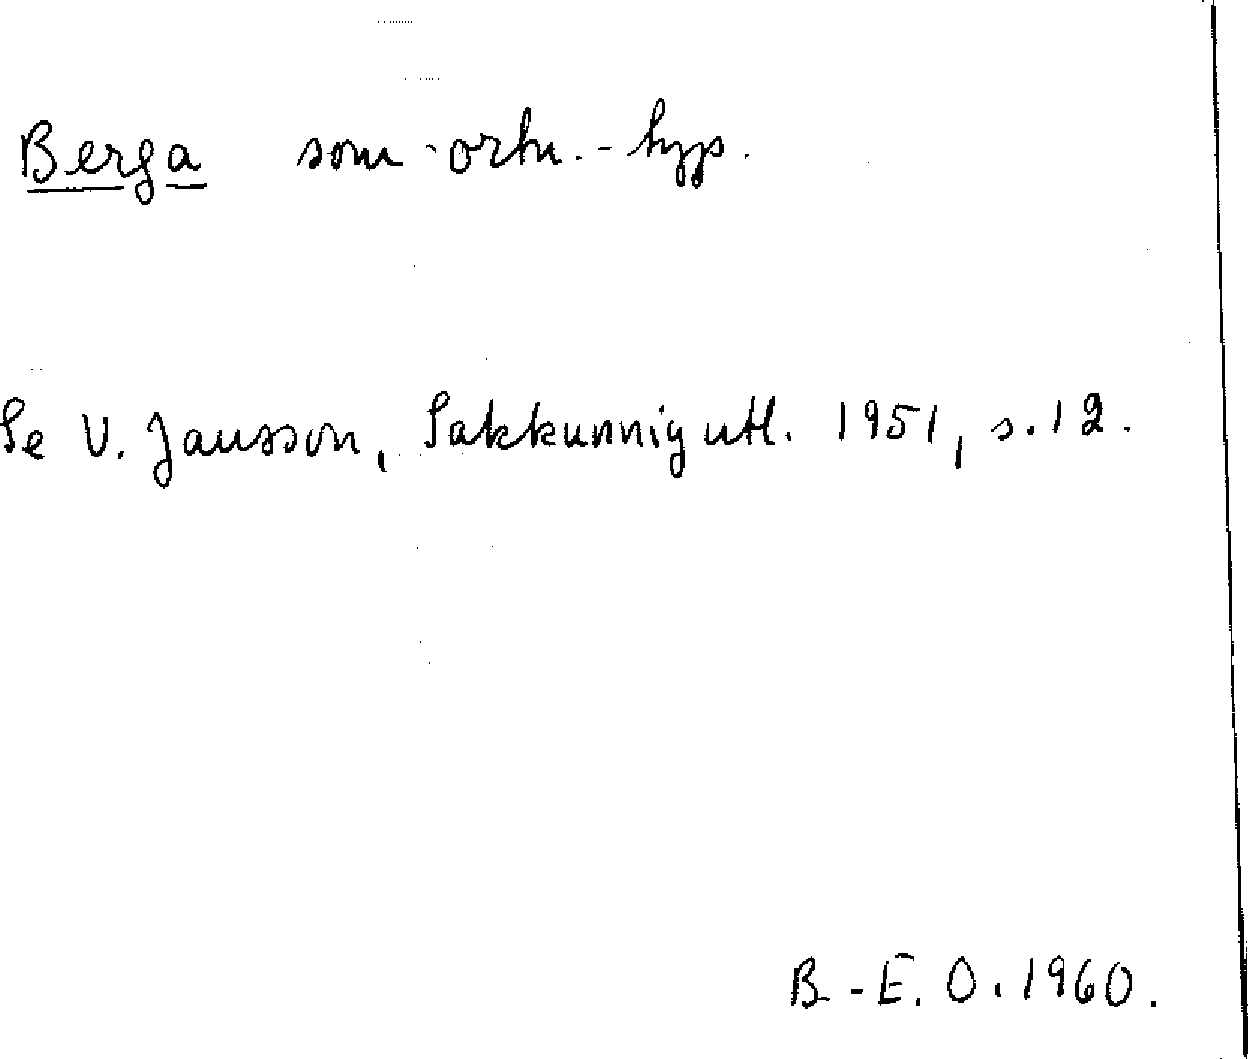 Berga som ortn.-typ.
Se V. Jansson, Sakkunnigutl. 1951, s. 12.
B.-E. O. 1960.